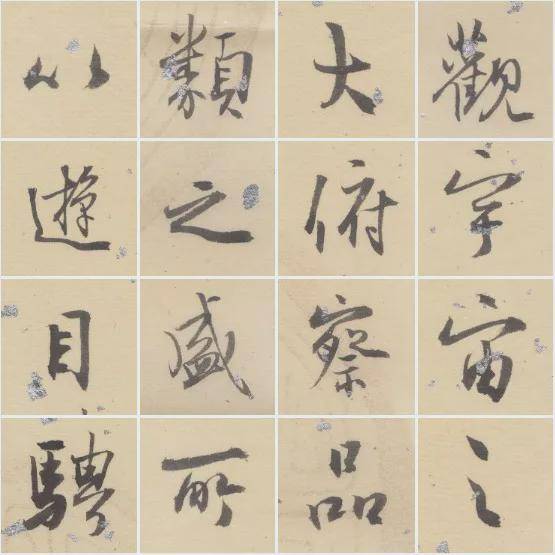 觀宇宙之
大俯察品
類之盛所
以遊目騁